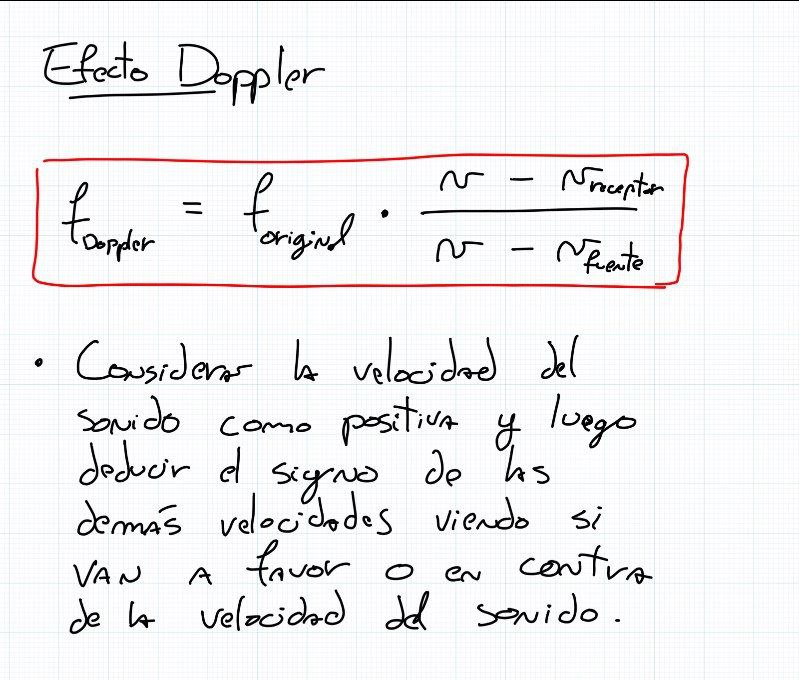 Efecto Doppler
f_Doppler = f_original · (v - v_receptor) / (v - v_fuente)
• Considerar la velocidad del
sonido como positiva y luego
deducir el signo de las
demás velocidades viendo si
van a favor o en contra
de la velocidad del sonido.